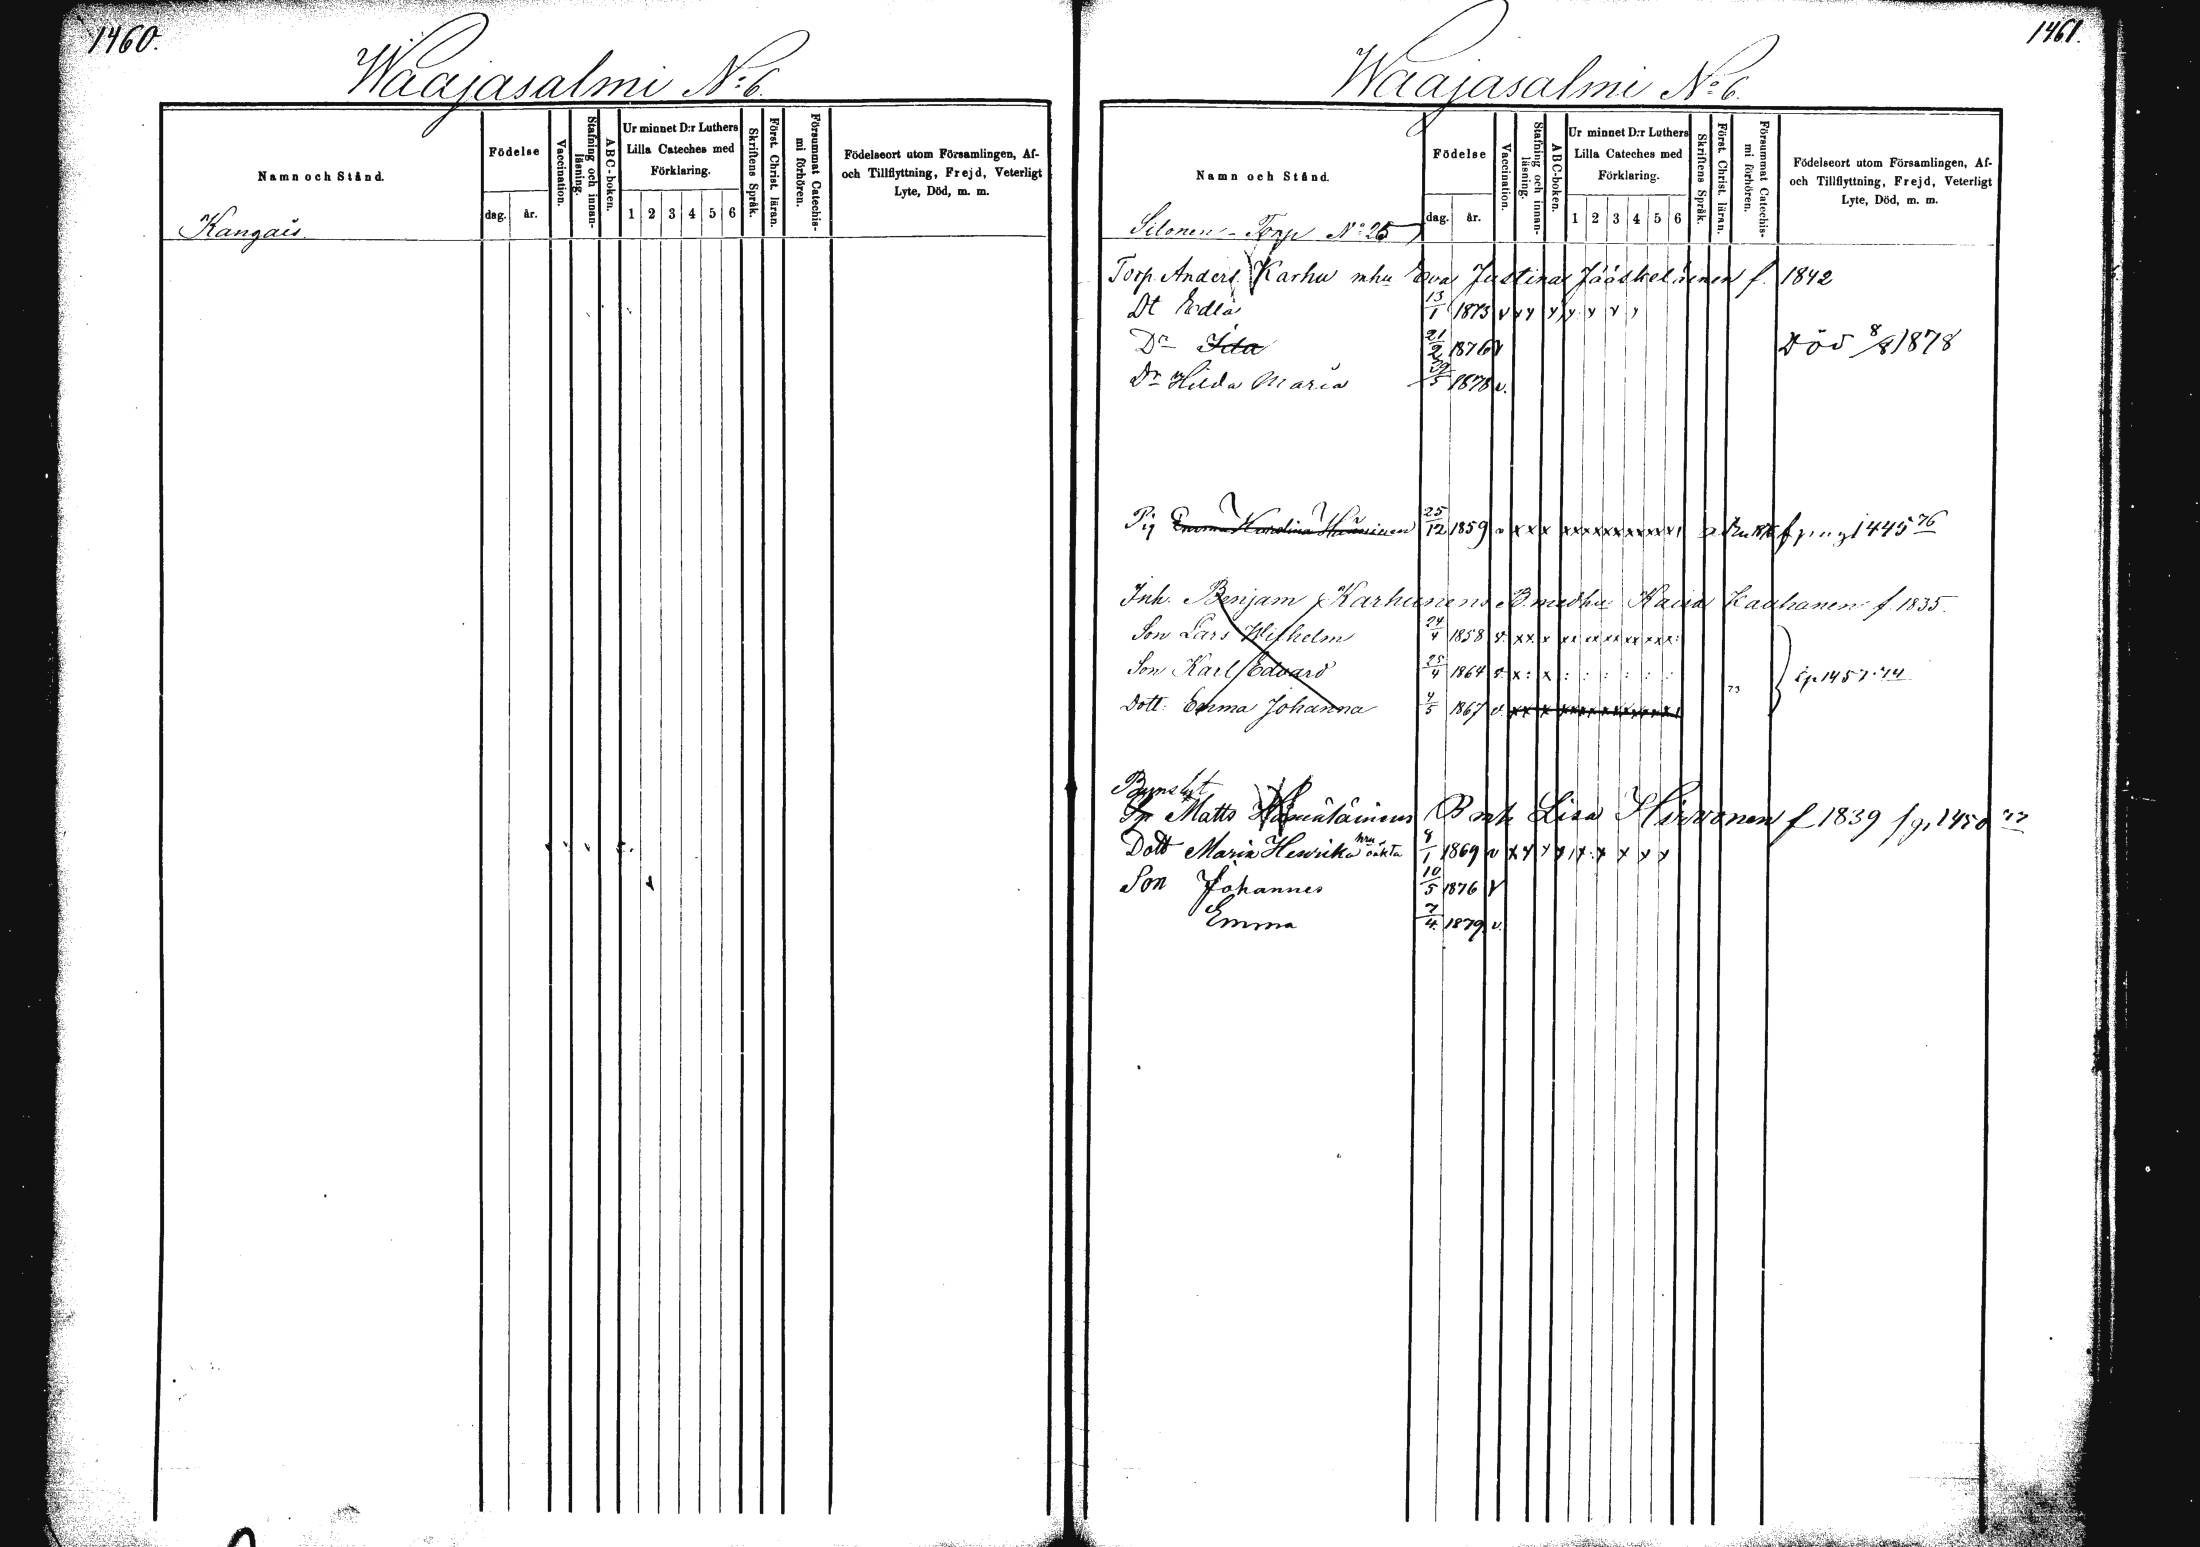 1460.
Waajasalmi No: 6.
Namn och Stånd.
Födelse
dag.
år.
Vaccination.
Stafning och innan-
läsning.
ABC-boken.
Ur minnet D:r Luthers
Lilla Cateches med
Förklaring.
1 2 3 4 5 6
Skriftens Språk.
Först. Christ. läran.
Försummat Catechis-
mi förhören.
Födelseort utom Församlingen, Af-
och Tillflyttning, Frejd, Veterligt
Lyte, Död, m. m.
Kangais.
1461.
Waajasalmi No: 6.
Namn och Stånd.
Födelse
dag.
år.
Vaccination.
Stafning och innan-
läsning.
ABC-boken.
Ur minnet D:r Luthers
Lilla Cateches med
Förklaring.
1 2 3 4 5 6
Skriftens Språk.
Först. Christ. läran.
Försummat Catechis-
mi förhören.
Födelseort utom Församlingen, Af-
och Tillflyttning, Frejd, Veterligt
Lyte, Död, m. m.
Silonen - Torp No: 25
Torp. Anders Karhu mhu Eva Justina Jääskeläinen f. 1842
Dt Edla 13/1 1873 v x y y y y y y
Dr Ida 21/2 1876 v Död 8/8 1878
Dr Hilda Maria 29/5 1878 v.
Pig Emma Karolina 25/12 1859 v x x x xxxxxxxxxx 1445 76
Inh. Benjam Karhunens B. medhu Kaisa Kauhanen f. 1835.
Son Lars Wilhelm 24/4 1858 v. xx x xx xx xx xx xx
Son Karl Edvard 25/4 1864 v. x: x : : : : : : 1457 74
Dott. Emma Johanna 4/5 1867 v. xx x xxxxxxxxxx 73
Matts B mh Lisa Hirvonen f 1839 1450 77
Dott Maria Henrika oäkta 8/1 1869 v x y y y x x x x x
Son Johannes 10/5 1876 v
Emma 7/4 1879 v.